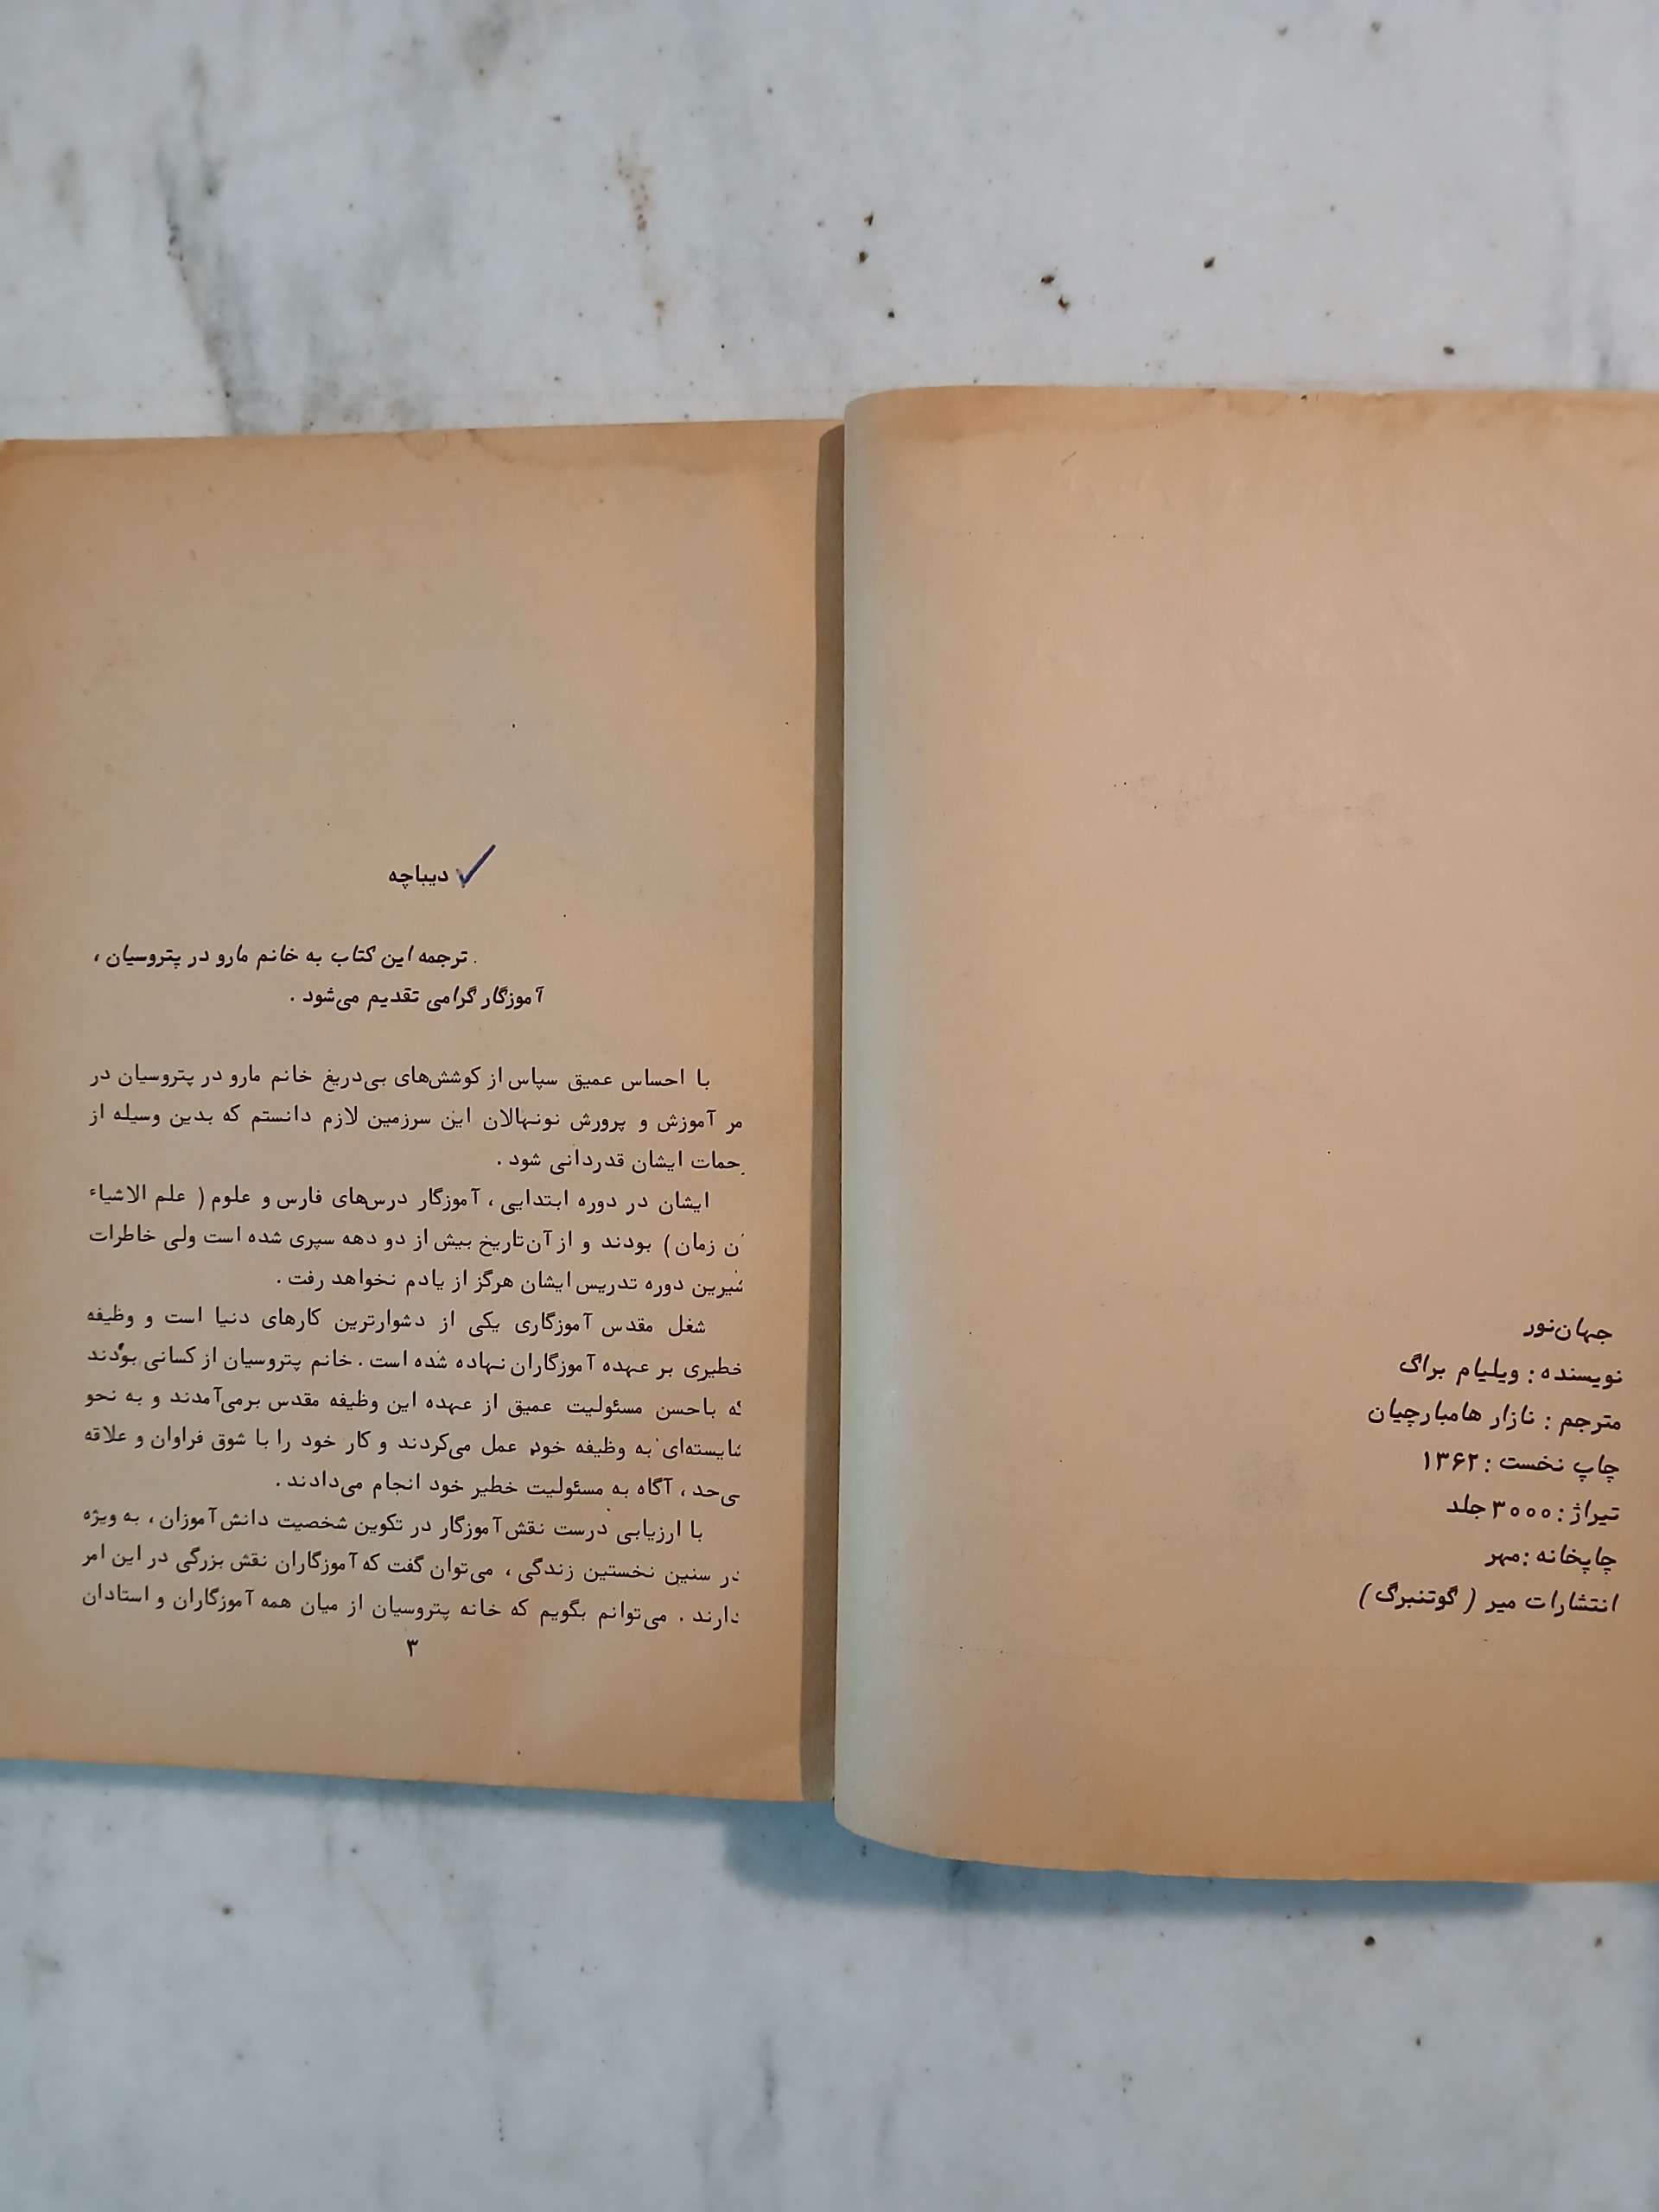 جهان‌نور
نویسنده : ویلیام براگ
مترجم : نازار هامبارچیان
چاپ نخست : ۱۳۶۲
تیراژ : ۳۰۰۰ جلد
چاپخانه : مهر
انتشارات میر ( گوتنبرگ )
دیباچه
ترجمه این کتاب به خانم مارو در پتروسیان ،
آموزگار گرامی تقدیم می‌شود .
با احساس عمیق سپاس از کوشش‌های بی‌دریغ خانم مارو در پتروسیان در
مر آموزش و پرورش نونهالان این سرزمین لازم دانستم که بدین وسیله از
حمات ایشان قدردانی شود .
ایشان در دوره ابتدایی ، آموزگار درس‌های فارس و علوم ( علم الاشیاء
ن زمان ) بودند و از آن‌تاریخ بیش از دو دهه سپری شده است ولی خاطرات
شیرین دوره تدریس ایشان هرگز از یادم نخواهد رفت .
شغل مقدس آموزگاری یکی از دشوارترین کارهای دنیا است و وظیفه
خطیری بر عهده آموزگاران نهاده شده است . خانم پتروسیان از کسانی بودند
که باحسن مسئولیت عمیق از عهده این وظیفه مقدس برمی‌آمدند و به نحو
شایسته‌ای به وظیفه خود عمل می‌کردند و کار خود را با شوق فراوان و علاقه
بی‌حد ، آگاه به مسئولیت خطیر خود انجام می‌دادند .
با ارزیابی درست نقش آموزگار در تکوین شخصیت دانش‌آموزان ، به ویژه
در سنین نخستین زندگی ، می‌توان گفت که آموزگاران نقش بزرگی در این امر
دارند . می‌توانم بگویم که خانه پتروسیان از میان همه آموزگاران و استادان
۳